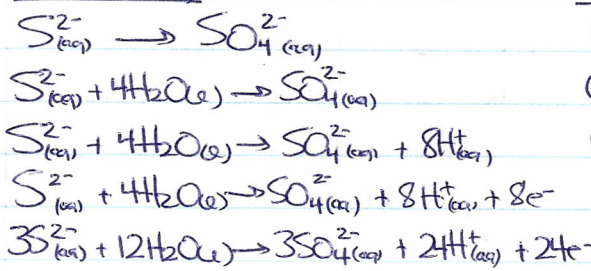 S²⁻(aq) → SO₄²⁻(aq)
S²⁻(aq) + 4H₂O(l) → SO₄²⁻(aq)
S²⁻(aq) + 4H₂O(l) → SO₄²⁻(aq) + 8H⁺(aq)
S²⁻(aq) + 4H₂O(l) → SO₄²⁻(aq) + 8H⁺(aq) + 8e⁻
3S²⁻(aq) + 12H₂O(l) → 3SO₄²⁻(aq) + 24H⁺(aq) + 24e⁻